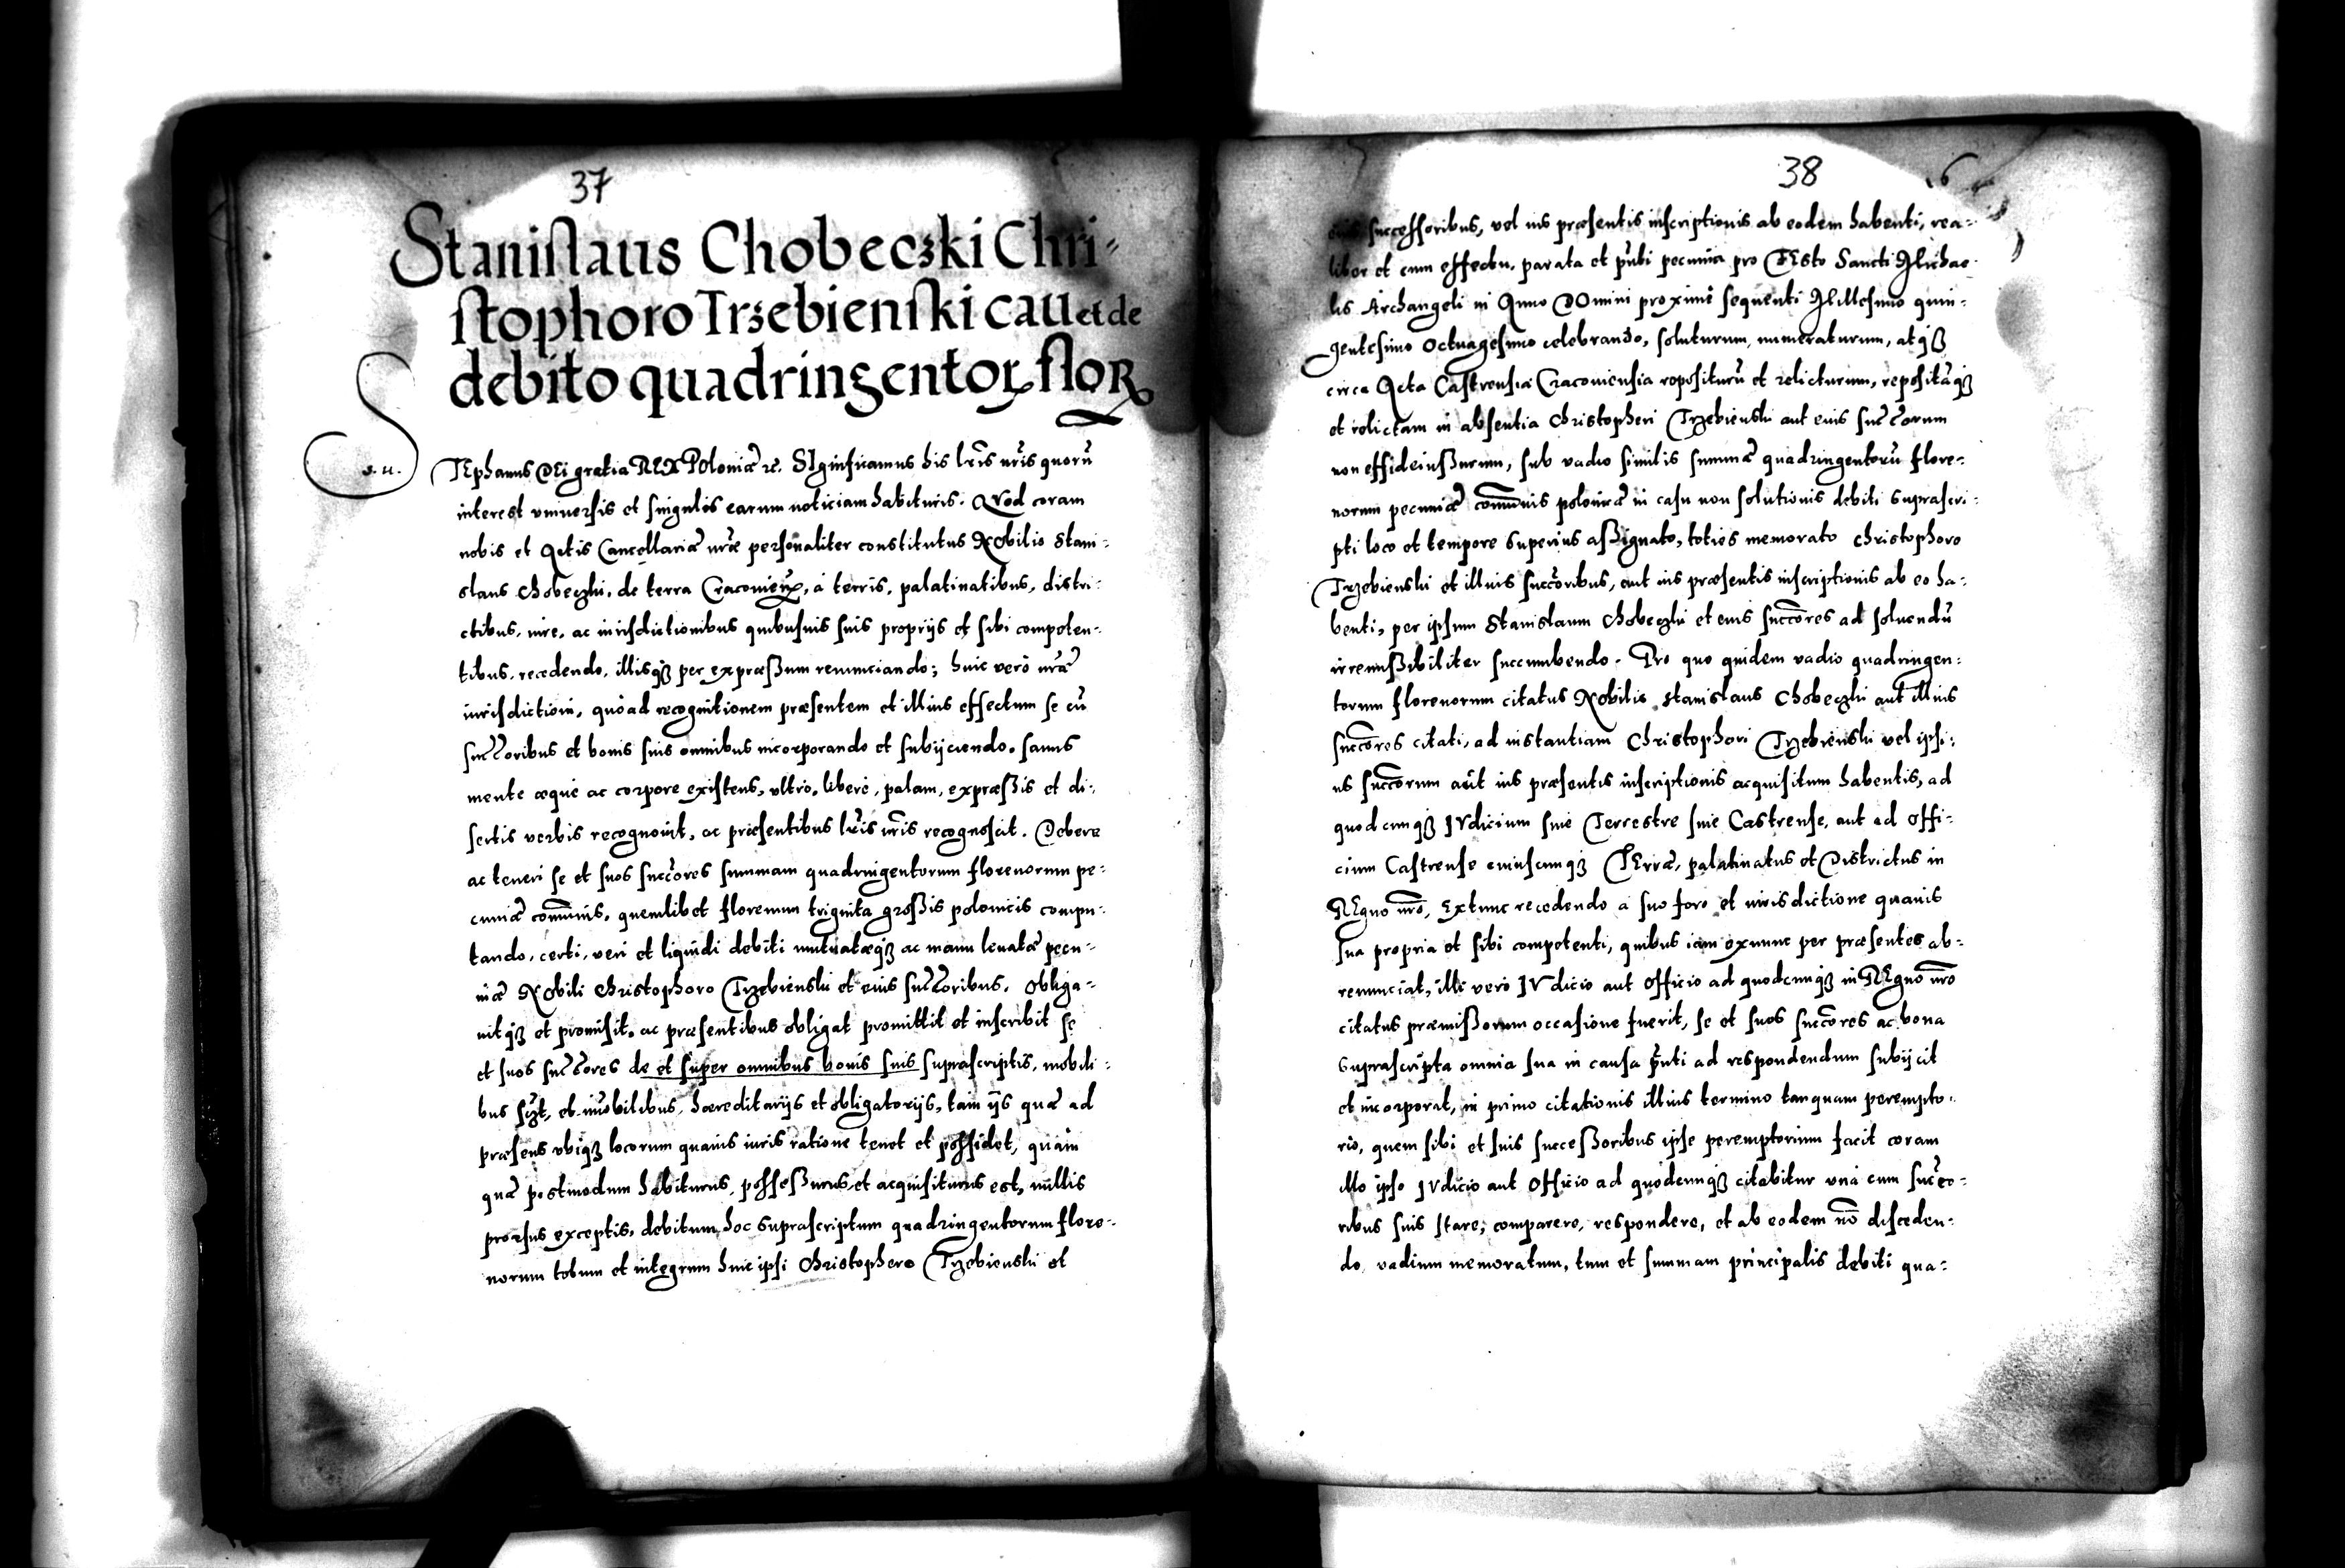 37
Stanislaus Chobeczki Chri-
stophoro Trzebienski cauet de
debito quadringentoꝝ floꝝ
s. n.
STEphanus DEi gratia REX POloniæ &c. SIgnificamus his lr̃is nr̃is quorũ
interest vniuersis et singulis earum noticiam habituris. QVod coram
nobis et Actis Cancellariæ nr̃æ personaliter constitutus NObilis Stani-
slaus Chobeczki, de terra Cracouieñ, a terris, palatinatibus, distri-
ctibus, iure, ac iurisdictionibus quibusuis suis proprijs et sibi competen-
tibus, recedendo, illisqꝫ per expræßum renunciando; huic verò nr̃æ
iurisdictioni, quò ad recognitionem præsentem et illius effectum se cũ
succ̃oribus et bonis suis omnibus incorporando et subijciendo. sanus
mente æque ac corpore existens, vltrò, libere, palam, expræßis et di-
sertis verbis recognouit, ac præsentibus lr̃is nr̃is recognoscit. Debere
ac teneri se et suos succ̃ores summam quadringentorum florenorum pe-
cuniæ com̃unis, quemlibet florenum triginta großis polonicis compu-
tando, certi, veri et liquidi debiti mutuatæqꝫ ac manu leuatæ pecu-
niæ NObili Christophoro Trzebienski et eius succ̃oribus. Obliga-
uitqꝫ et promisit, ac præsentibus obligat promittit et inscribit se
et suos succ̃ores de et super omnibus bonis suis suprascriptis, mobili-
bus sꝫt, et im̃obilibus, hæreditarijs et obligatorijs, tam ijs quæ ad
præsens vbiqꝫ locorum quauis iuris ratione tenet et possidet, quàm
quæ postmodum habiturus, posseßurus et acquisiturus est, nullis
prorsus exceptis, debitum hoc suprascriptum quadringentorum flore-
norum totum et integrum huic ipsi Christophero Trzebienski et
38
eius successoribus, vel ius præsentis inscriptionis ab eodem habenti, rea-
liter et cum effectu, parata et pñti pecunia pro FEsto Sancti MIchae-
lis Archangeli in Anno DOmini proximè sequenti MIllesimo quin-
gentesimo octuagesimo celebrando, soluturum, numeraturum, atqꝫ
circa Acta Castrensia Cracouiensia repositurũ et relicturum, repositãqꝫ
et relictam in absentia Christopheri Trzebienski aut eius succ̃orum
non effideiußurum, sub vadio similis summæ quadringentorũ flore-
norum pecuniæ com̃unis polonicæ in casu non solutionis debiti suprascri-
pti loco et tempore superius aßignato, toties memorato Christophoro
Trzebienski et illius succ̃oribus, aut ius præsentis inscriptionis ab eo ha-
benti, per ipsum Stanislaum Chobeczki et eius succ̃ores ad soluendũ
irremißibiliter succumbendo. Pro quo quidem vadio quadringen-
torum florenorum citatus NObilis Stanislaus Chobeczki aut illius
succ̃ores citati, ad instantiam Christophori Trzebienski vel ipsi-
us succ̃orum aut ius præsentis inscriptionis acquisitum habentis, ad
quodcunqꝫ IVdicium siue Terrestre siue Castrense, aut ad offi-
cium Castrense cuiuscunqꝫ TErræ, palatinatus et Districtus in
REgno nr̃o, extunc recedendo a suo foro et iurisdictione quauis
sua propria et sibi competenti, quibus iam exnunc per præsentes ab-
renunciat, illi verò IVdicio aut Officio ad quodcunqꝫ in REgno nr̃o
citatus præmißorum occasione fuerit, se et suos succ̃ores ac bona
suprascripta omnia sua in causa pñti ad respondendum subijcit
et incorporat, in primo citationis illius termino tanquam perempto-
rio, quem sibi et suis succeßoribus ipse peremptorium facit coram
illo ipso IVdicio aut Officio ad quodcunqꝫ citabitur vna cum succ̃o-
ribus suis stare, comparere, respondere, et ab eodem nõ disceden-
do, vadium memoratum, tum et summam principalis debiti qua-